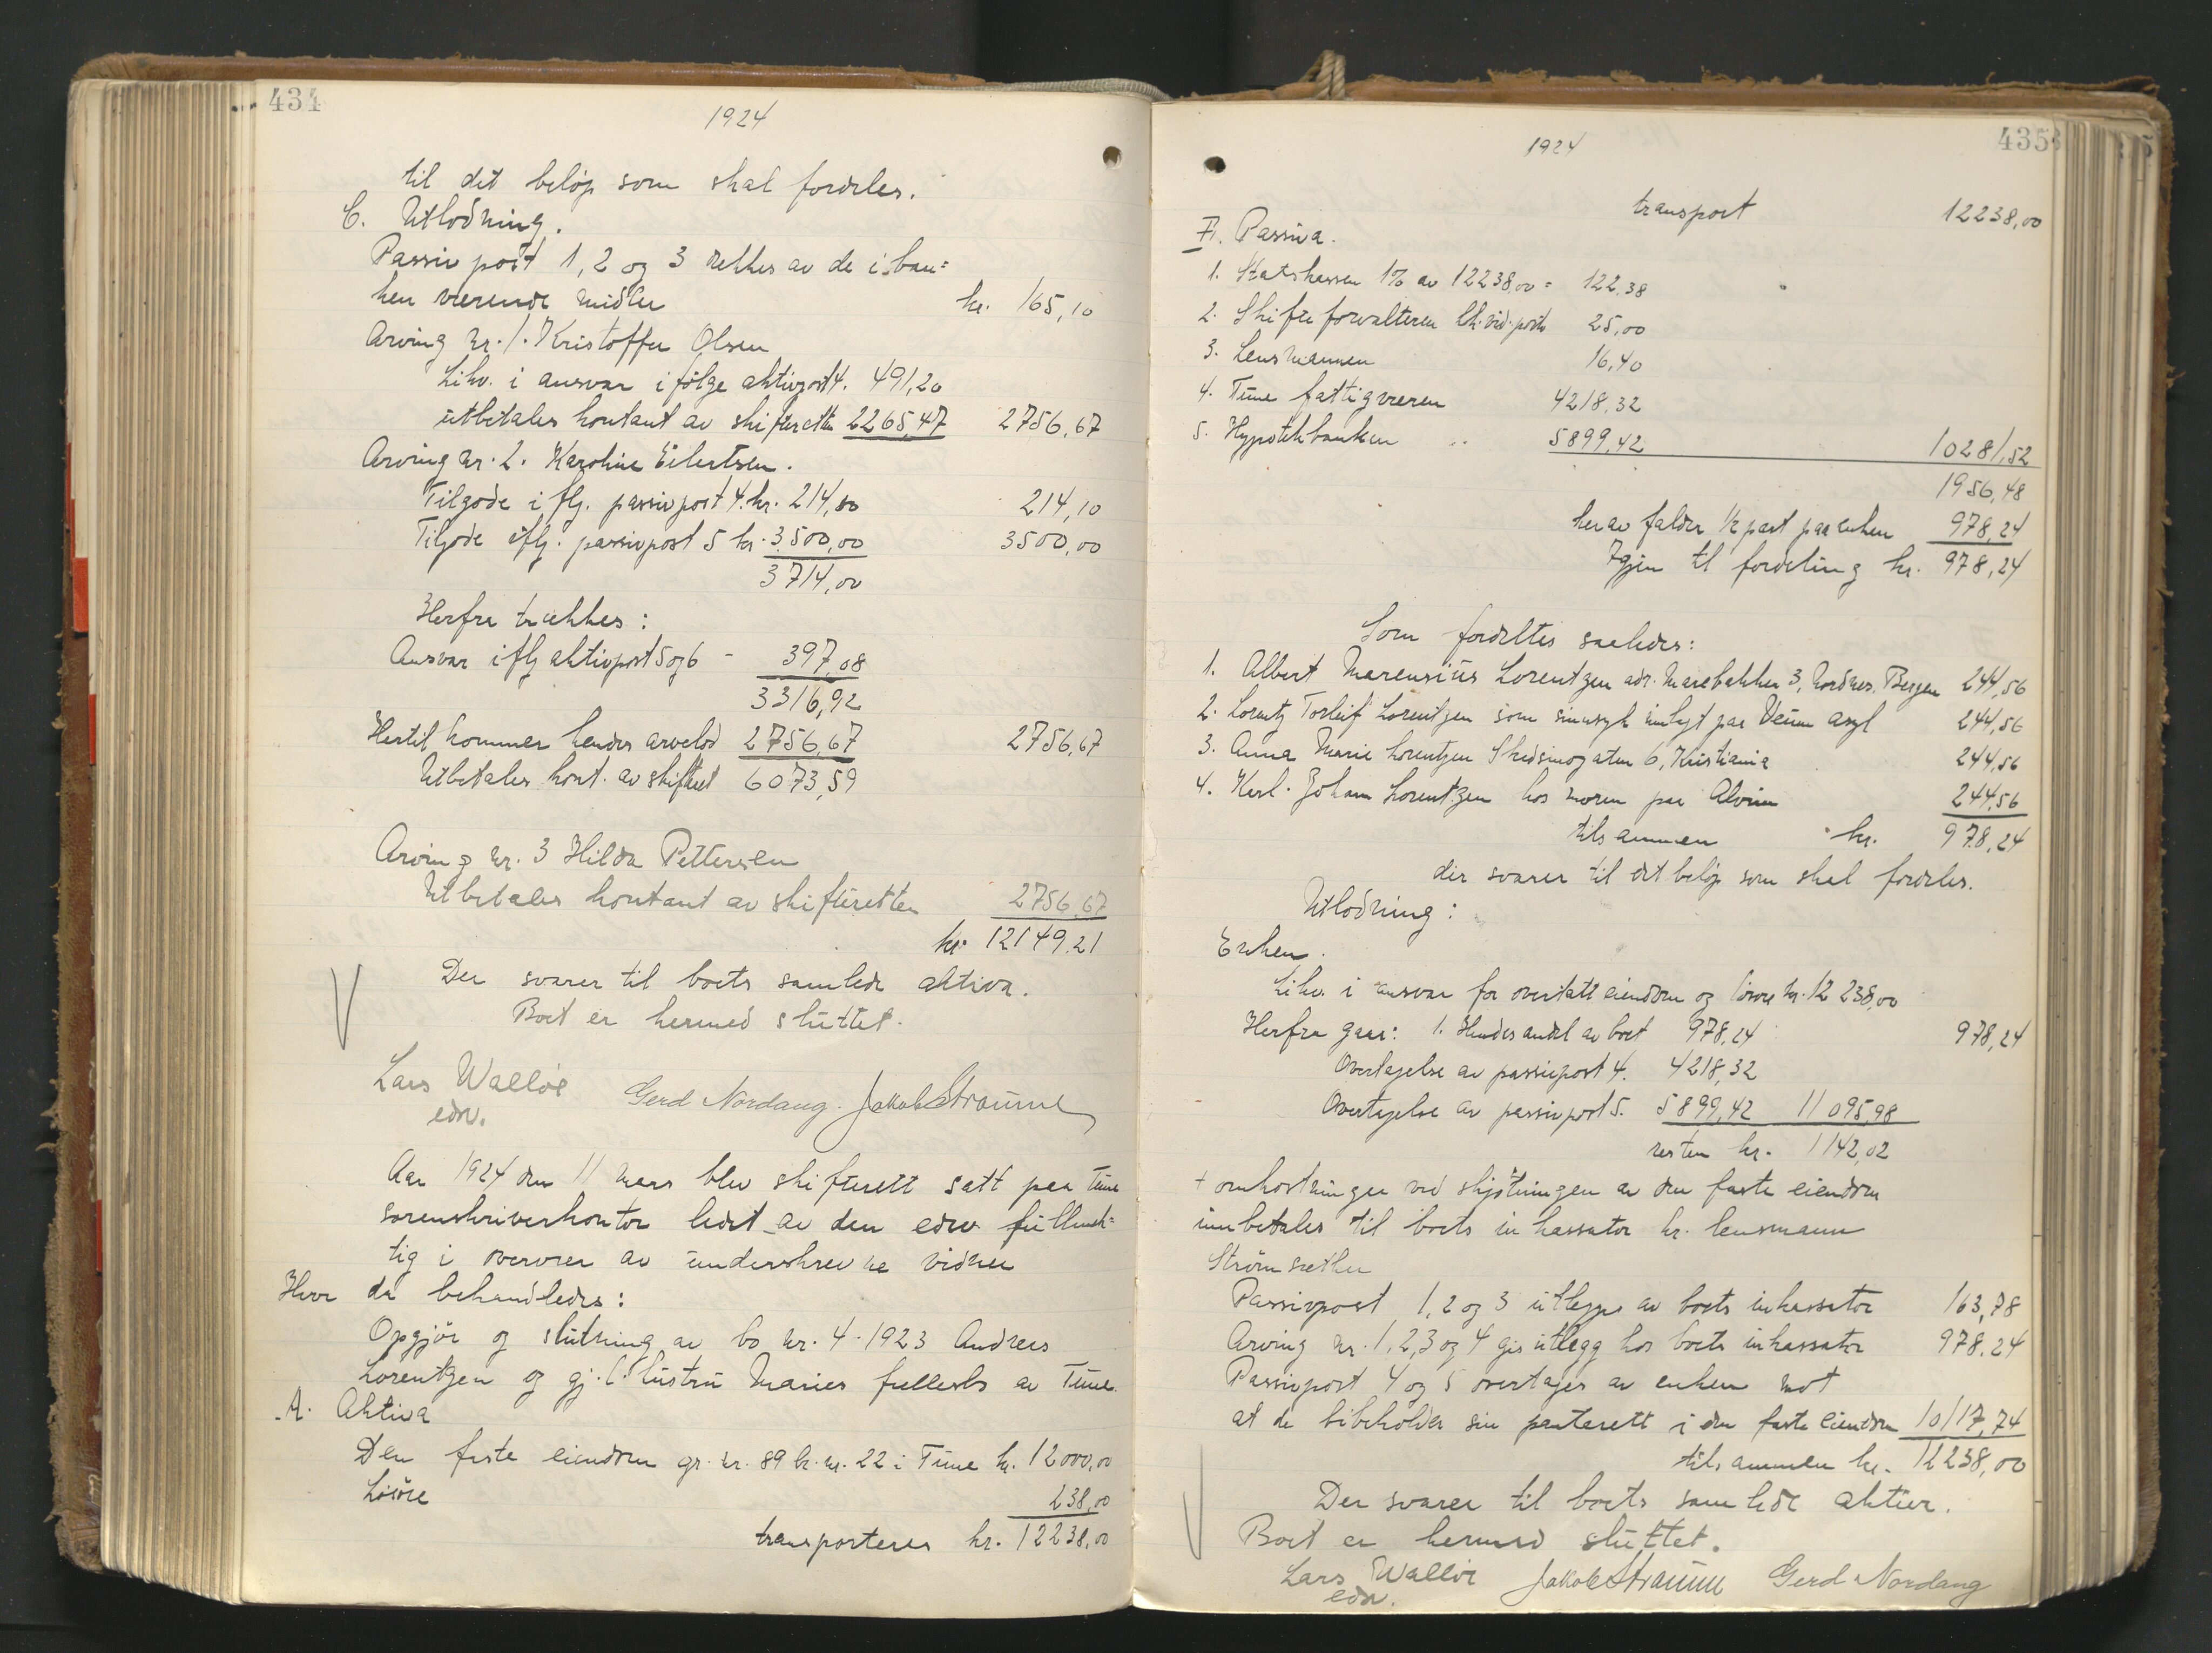 434
1924
til det beløp som skal fordeles.
C. Utlodning.
Passiv post 1, 2 og 3 dekkes av de i ban=
ken værende midler kr. 165,10
Arving nr. 1. Kristoffer Olsen
Likv. i ansvar i følge aktivpost 4. 491,20
utbetales kontant av skifteretten 2265,47 2756,67
Arving nr. 2. Karoline Eilertsen.
Tilgode i flg. passivpost 4. kr. 214,00 214,10
Tilgode iflg. passivpost 5 kr. 3500,00 3500,00
3714,00
Herfra trækkes:
Ansvar iflg aktivpost 5 og 6 - 397,08
3316,92
Hertil kommer hendes arvelod 2756,67 2756,67
Utbetales kont. av skifteret 6073,59
Arving nr. 3 Hilda Pettersen
Utbetales kontant av skifteretten 2756,67
kr. 12149,21
Der svarer til boets samlede aktiva.
Boet er hermed sluttet.
Lars Walløe Gerd Nordang. Jakob Straume
edsv.
Aar 1924 den 11 mars blev skifterett satt paa Tune
sorenskriverkontor ledet av den edsv fullmek=
tig i overvær av underskrevne vidner
Hvor da behandledes:
Opgjør og slutning av bo nr. 4 - 1923 Andreas
Lorentzen og gj. l. hustru Maries fællesbo av Tune.
A. Aktiva
Den faste eiendom gr. nr. 89 br. nr. 22 i Tune kr. 12000,00
Løsøre 238,00
transporteres kr. 12238,00
435
1924
transport 12238,00
Passiva.
1. Statskassen 1% av 12238,00 = 122,38
2. Skifteforvalteren 25,00
3. Lensmannen 16,40
4. Tune fattigvæsen 4218,32
5. Hypotekbanken .. 5899,42 10281,52
1956,48
herav falder 1/2 part paa enken 978,24
Igjen til fordeling kr. 978,24
Som fordeltes saaledes:
1. Albert Marensius Lorentzen adr. Marebakken 3, Nordnes. Bergen 244,56
2. Lorentz Torleif Lorentzen som sinnsyk innlagt paa Veum asyl 244,56
3. Anna Marie Lorentzen Skedsmogaten 6, Kristiania 244,56
4. Karl Johan Lorentzen hos moren paa Alvim 244,56
tilsammen kr. 978,24
der svarer til det beløp som skal fordeles.
Utlodning:
Enken.
Likv. i ansvar for overtatt eiendom og løsøre kr. 12 238,00
Herfra gaar: 1. Hendes andel av boet 978,24 978,24
Overtagelse av passivpost 4. 4218,32
Overtagelse av passivpost 5. 5899,42 11095,98
resten kr. 1142,02
+ omkostninger ved skjøtningen av den faste eiendom
innbetales til boets inkassator hr. lensmann
Strømsæther
Passivpost 1, 2 og 3 utlegges av boets inkassator 163,78
Arving nr. 1, 2, 3 og 4 gis utlegg hos boets inkassator 978,24
Passivpost 4 og 5 overtages av enken mot
at de bibeholder sin panterett i den faste eiendom 10117,74
tilsammen kr. 12238,00
Der svarer til boets samlede aktiver.
Boet er hermed sluttet.
Lars Walløe Jakob Straume Gerd Nordang
edsv.